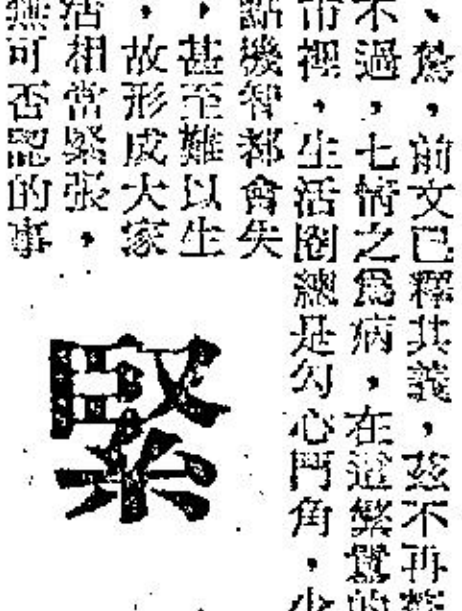 、驚,前文已釋其義,茲不再
不過,七情之為病,在這繁
市裡,生活圈總是勾心鬥角,少
點機智都會失
,甚至難以生
,故形成大家
活相當緊張,
無可否認的事
緊